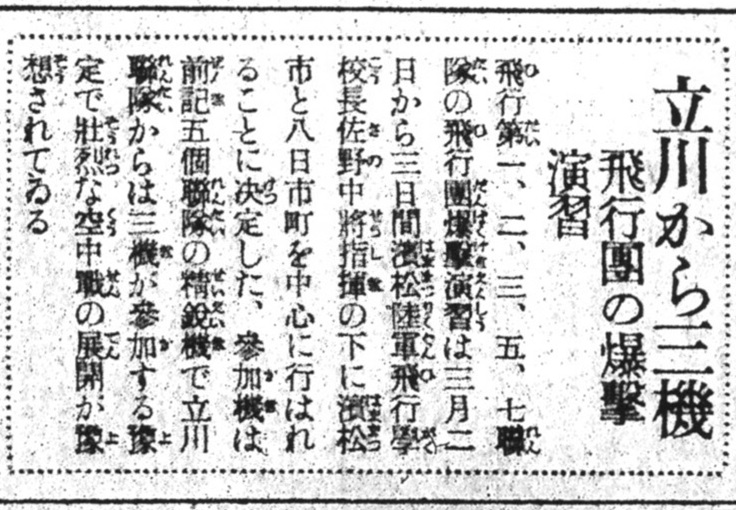 立川から三機
飛行團の爆擊
演習
飛行第一、二、三、五、七聯
隊の飛行團爆擊演習は三月二
日から三日間濱松陸軍飛行學
校長佐野中將指揮の下に濱松
市と八日市町を中心に行はれ
ることに決定した、參加機は
前記五個聯隊の精銳機で立川
聯隊からは三機が參加する豫
定で壯烈な空中戰の展開が豫
想されてゐる